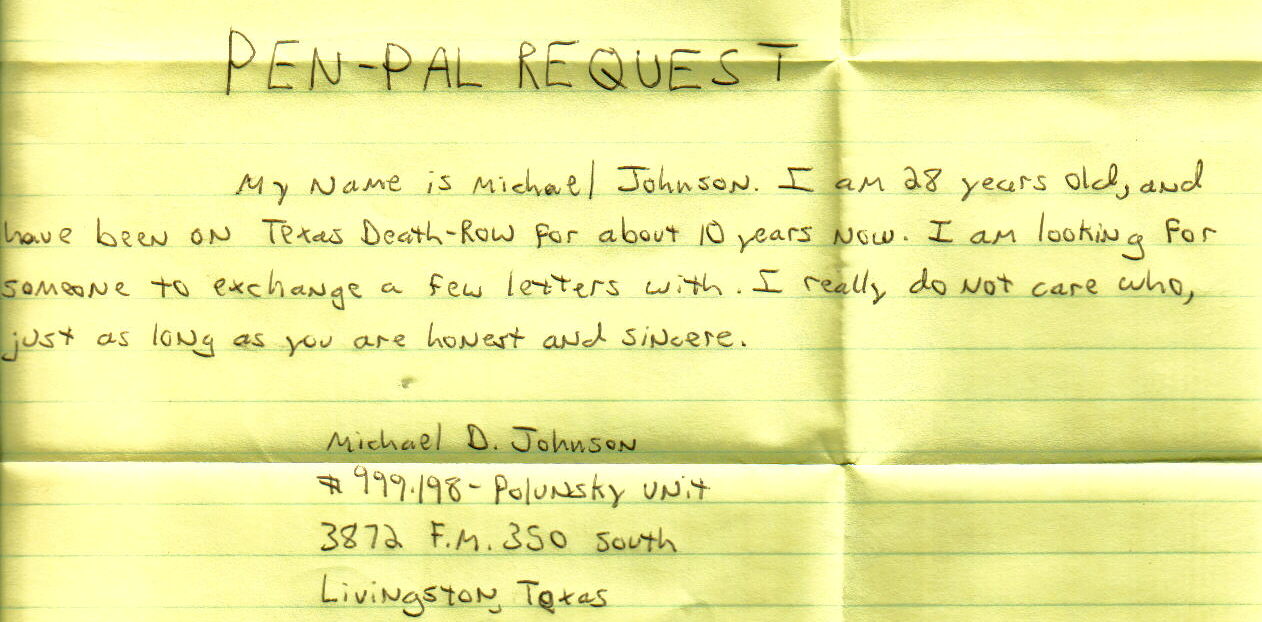 PEN-PAL REQUEST
My Name is Michael Johnson. I am 28 years old, and
have been on Texas Death-Row for about 10 years now. I am looking for
someone to exchange a few letters with. I really do not care who,
just as long as you are honest and sincere.
Michael D. Johnson
#999.198-Polunsky unit
3872 F.M. 350 South
Livingston, Texas